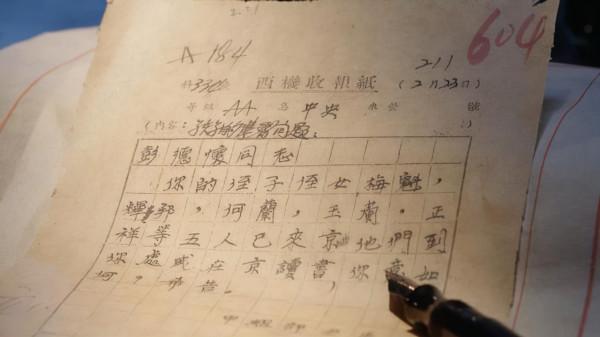 A 184
211
604
西機收報紙 (2月23日)
等級 AA 中央 號
(內容: 問題. )
彭德懷同志
你的侄子侄女梅魁,
輝邦,何蘭,玉蘭,正
祥等五人已來京他們到
你處或在京讀書,你意如
何?盼告。